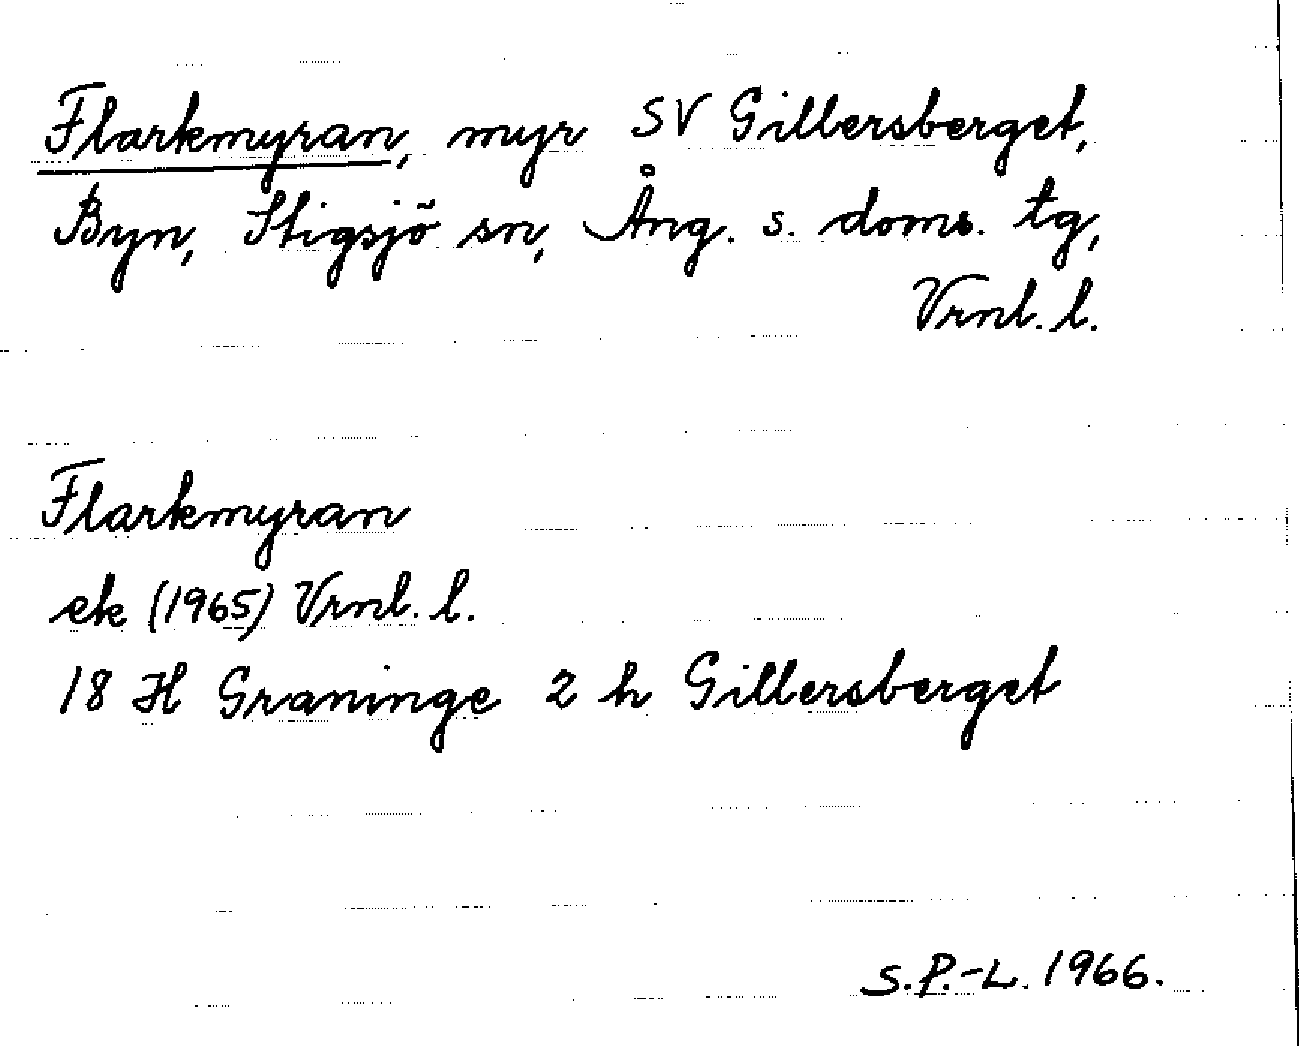 Flarkmyran, myr SV Gillersberget,
Byn, Stigsjö sn, Ång. s. doms. tg,
Vrnl. l.
Flarkmyran
ek (1965) Vrnl. l.
18 H Graninge 2 h Gillersberget
S.P.-L. 1966.